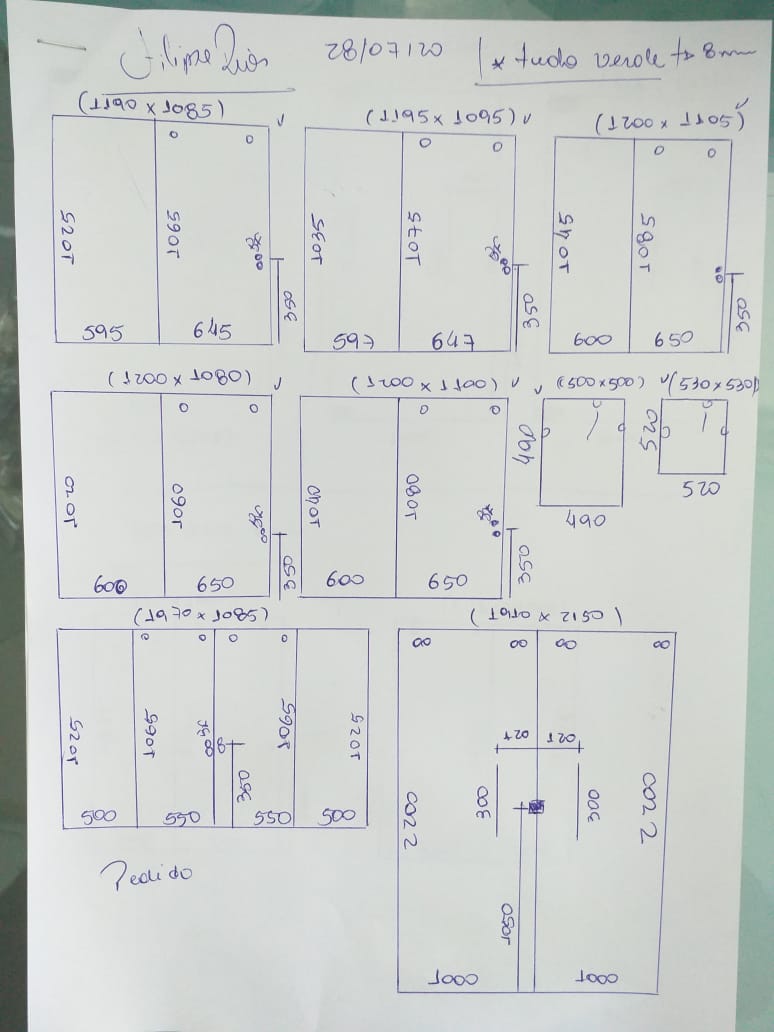 Filipe Rios 28/07/20 * tudo verde 8mm
(1190 x 1085)
1025
1065
350
595
645
(1195 x 1095)
1035
1075
350
597
647
(1200 x 1105)
1045
1085
350
600
650
(1200 x 1080)
1020
1060
350
600
650
(1200 x 1100)
1040
1080
350
600
650
(500 x 500)
490
490
(530 x 530)
520
520
(1970 x 1085)
1025
1065
1065
1025
350
500
550
550
500
(1940 x 2150)
120
120
2200
300
300
2200
1050
1000
1000
Pedido